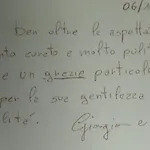 06/1
Ben oltre le aspetta
nto curato e molto puli
e un grazie particol
per la sua gentilezza
lità.
Giorgia e